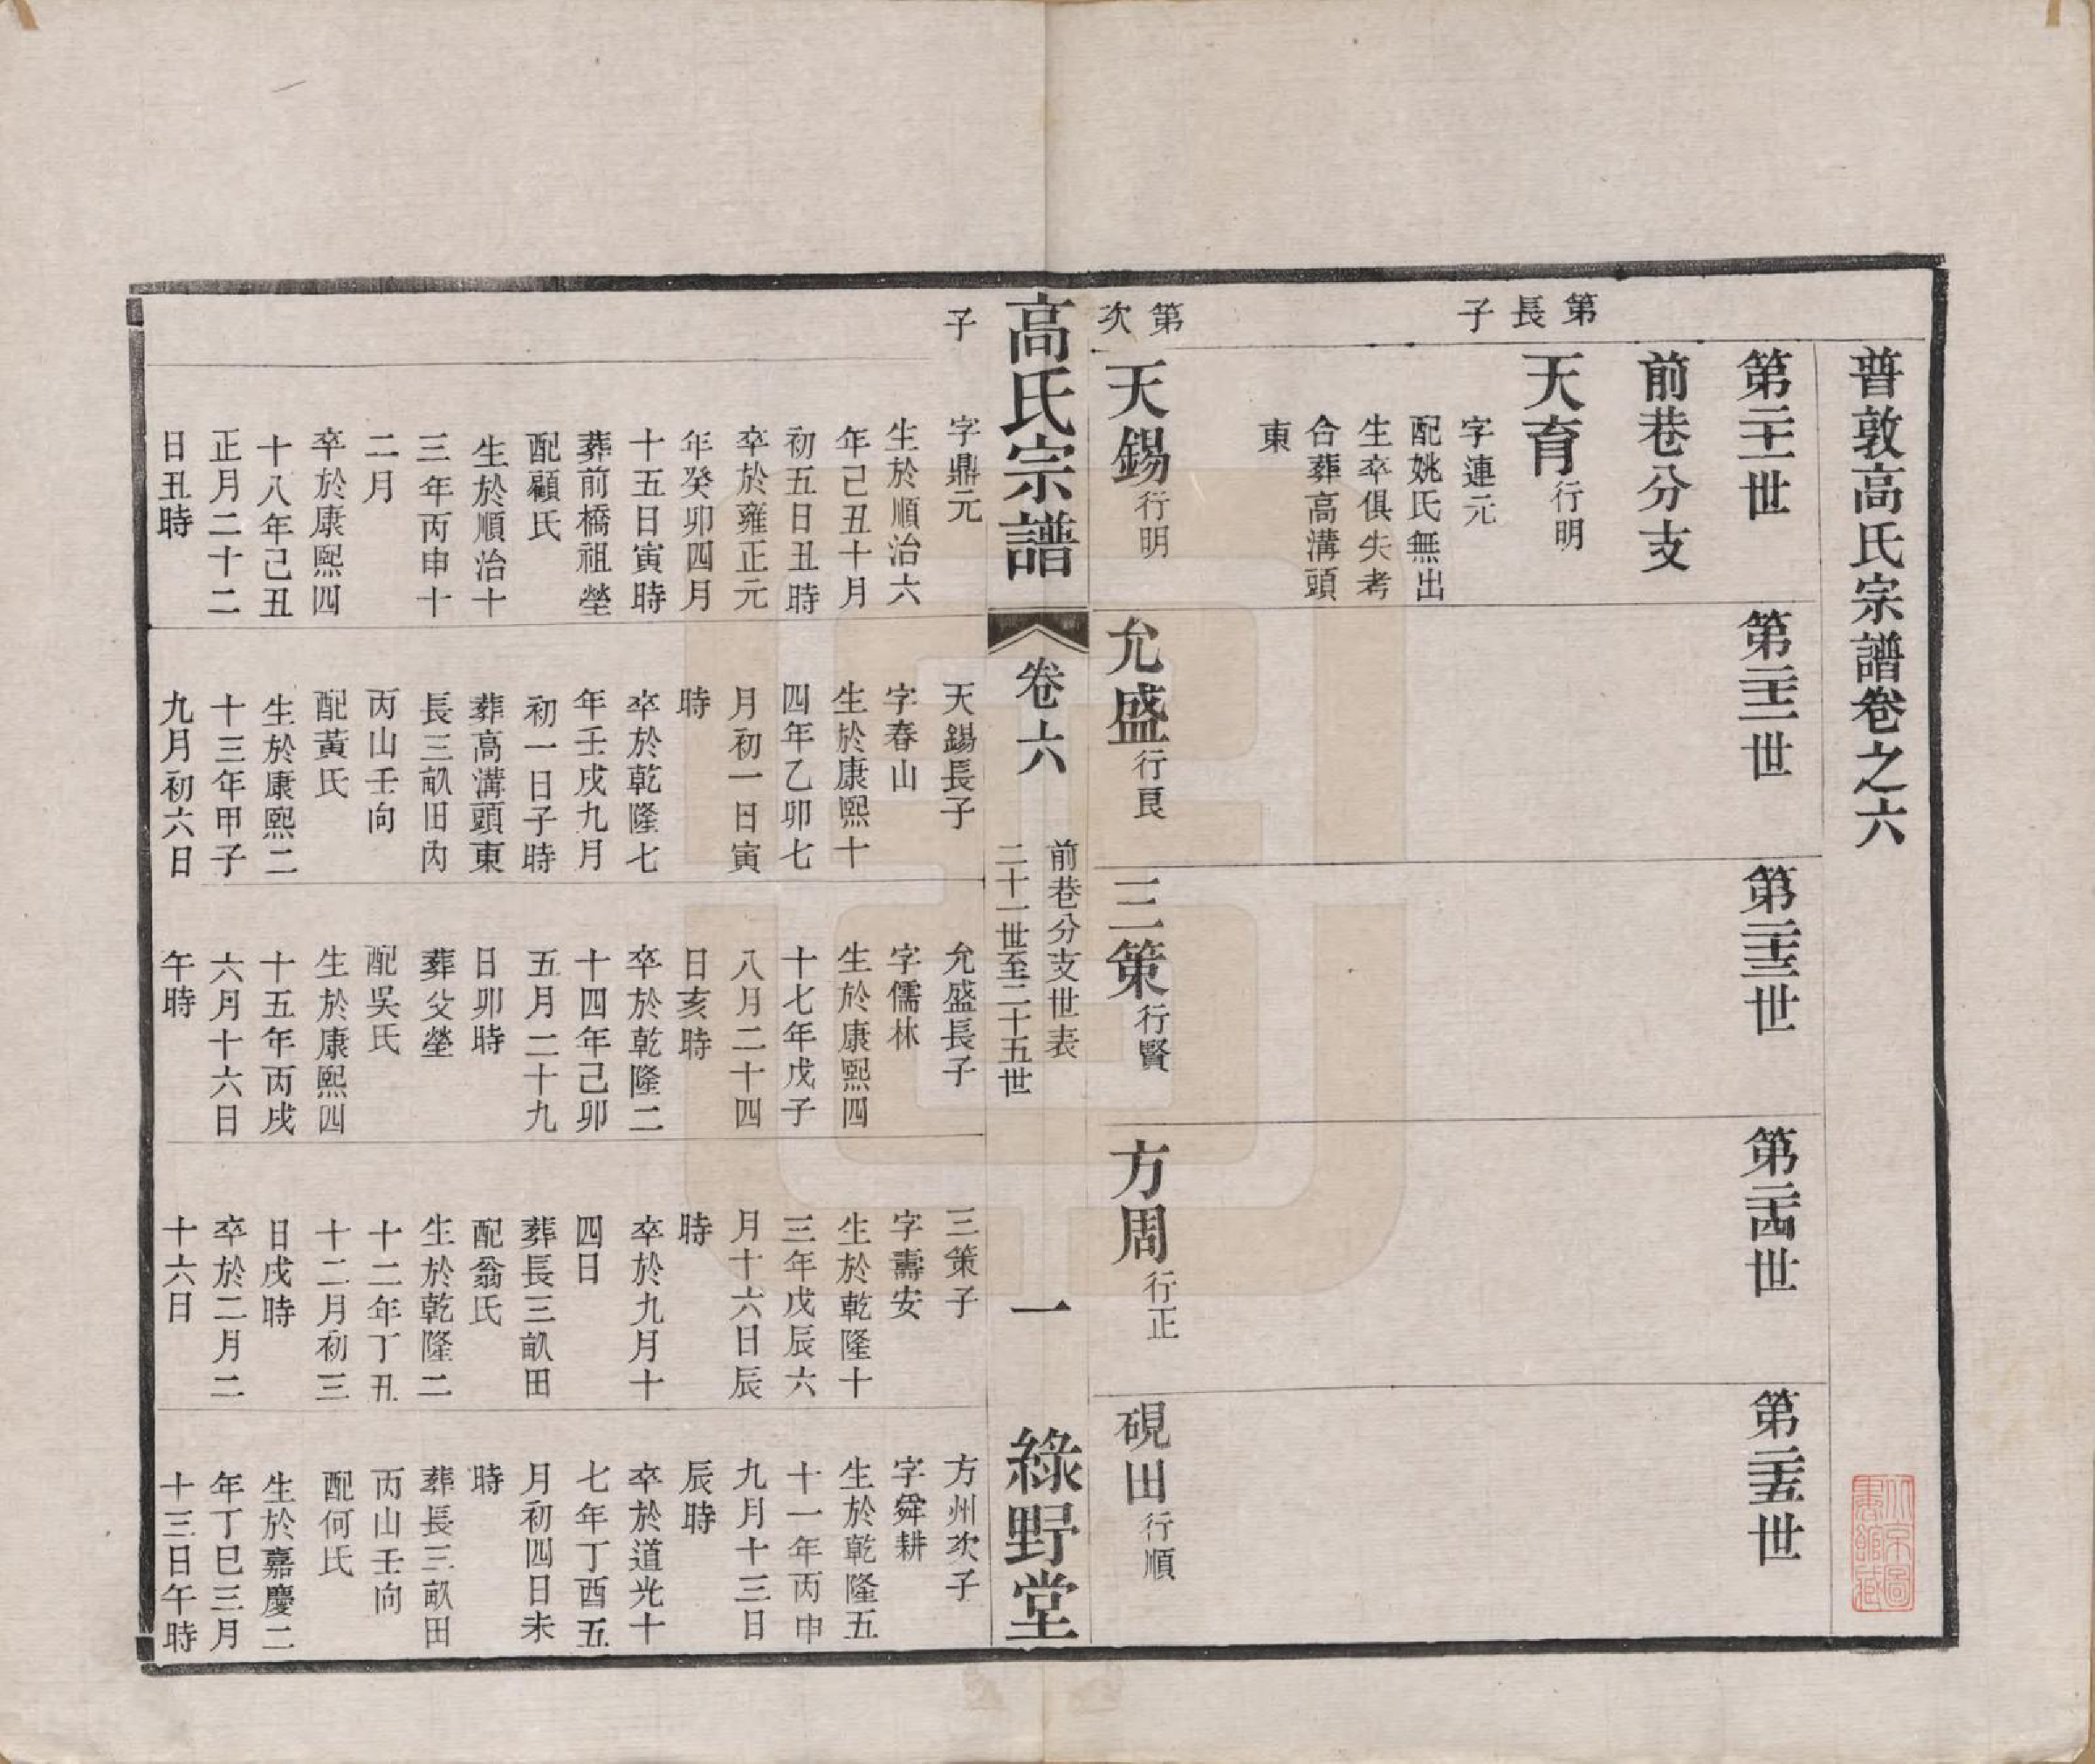 普敦高氏宗譜卷之六
第二十一世
第二十二世
第二十三世
第二十四世
第二十五世
前巷分支
第長子
天育行明
字連元
配姚氏無出
生卒俱失考
合葬高溝頭
東
第次
天錫行明
允盛行艮
三策行賢
方周行正
硯田行順
高氏宗譜
卷六
前巷分支世表
二十一世至二十五世
一
綠野堂
子
字鼎元
生於順治六
年己丑十月
初五日丑時
卒於雍正元
年癸卯四月
十五日寅時
葬前橋祖塋
配顧氏
生於順治十
三年丙申十
二月
卒於康熙四
十八年己丑
正月二十二
日丑時
天錫長子
字春山
生於康熙十
四年乙卯七
月初一日寅
時
卒於乾隆七
年壬戌九月
初一日子時
葬高溝頭東
長三畝田內
丙山壬向
配黃氏
生於康熙二
十三年甲子
九月初六日
允盛長子
字儒林
生於康熙四
十七年戊子
八月二十四
日亥時
卒於乾隆二
十四年己卯
五月二十九
日卯時
葬父塋
配吳氏
生於康熙四
十五年丙戌
六月十六日
午時
三策子
字壽安
生於乾隆十
三年戊辰六
月十六日辰
時
卒於九月十
四日
葬長三畝田
配翁氏
生於乾隆二
十二年丁丑
十二月初三
日戌時
卒於二月二
十六日
方州次子
字舜耕
生於乾隆五
十一年丙申
九月十三日
辰時
卒於道光十
七年丁酉五
月初四日未
時
葬長三畝田
丙山壬向
配何氏
生於嘉慶二
年丁巳三月
十三日午時